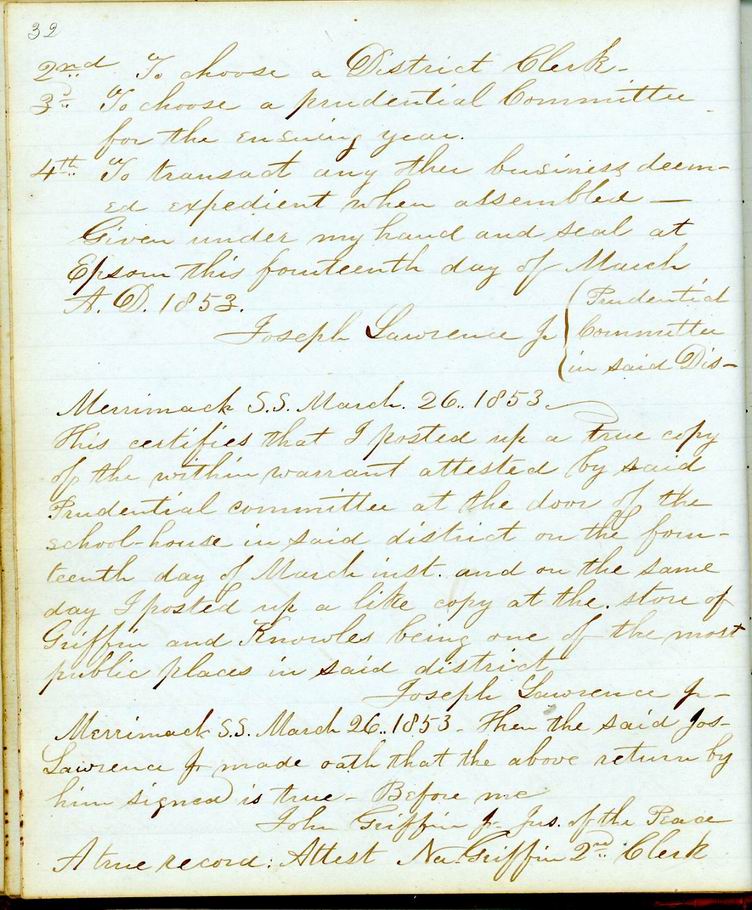 32
2nd To choose a District Clerk-
3d To choose a prudential Committee
for the ensuing year.
4th To transact any other business deem-
ed expedient when assembled —
Given under my hand and seal at
Epsom this fourteenth day of March
A. D. 1853.
Joseph Lawrence Jr { Prudential
Committee
in said Dis-
Merrimack S.S. March. 26.. 1853
This certifies that I posted up a true copy
of the within warrant attested by said
Prudential committee at the door of the
school-house in said district on the four-
teenth day of March inst. and on the same
day I posted up a like copy at the store of
Griffin and Knowles being one of the most
public places in said district
Joseph Lawrence Jr-
Merrimack S.S. March 26.. 1853. Then the said Jos-
Lawrence Jr made oath that the above return by
him signed is true - Before me
John Griffin Jr Jus. of the Peace
A true record: Attest Griffin 2nd Clerk